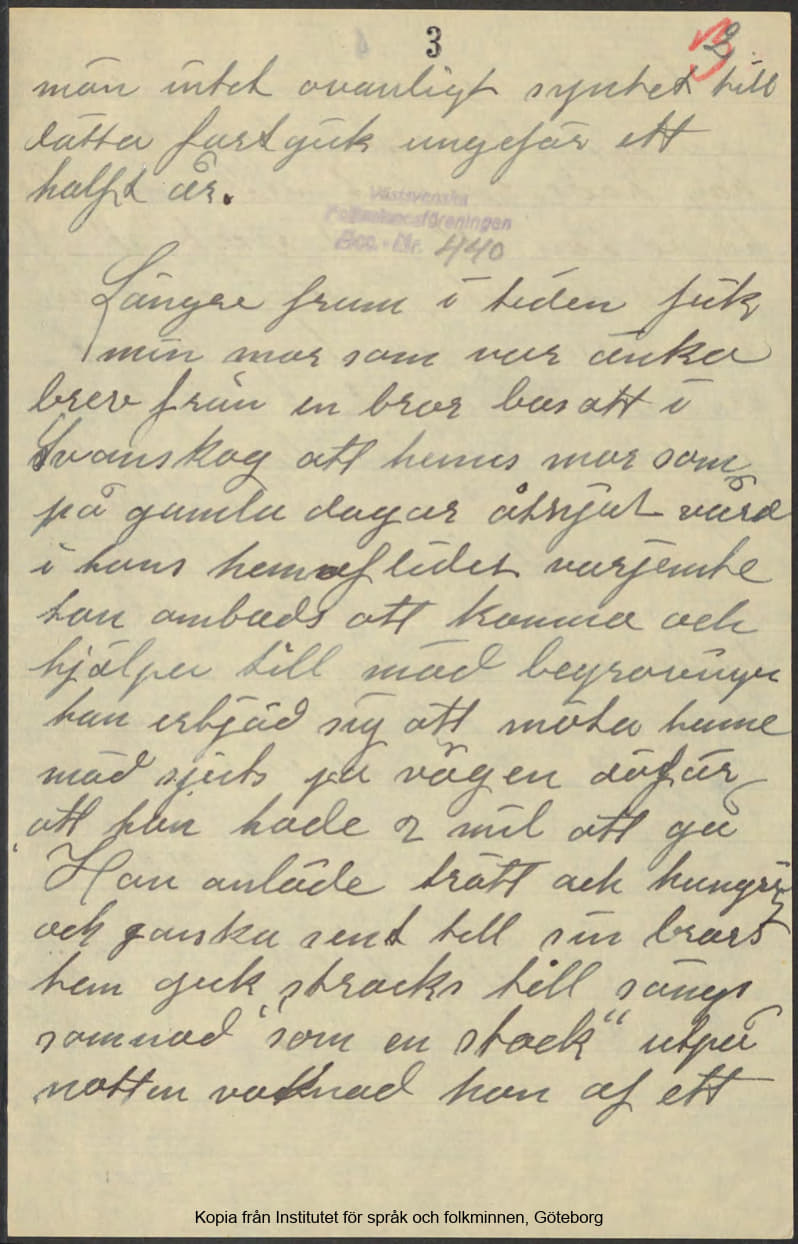 3
3
män intet ovanligt syntes till
dätta fortgick ungefär ett
halft år.
Västsvenska
Folkminnesföreningen
Acc. - Nr. 440
Längre fram i tiden fick
min mor som var änka
brev från en bror bosatt i
Svanskog att hennes mor som
på gamla dagar åtnjut vård
i hans hem aflidet varjemte
hon ombads att komma och
hjälpa till mäd begravningen
han erbjöd sig att möta henne
mäd sjuts på vägen döfär
att hon hade 2 mil att gå
Hon anläde trött och hungrig
och ganska sent till sin brors
hem gick stracks till sängs
somnad "som en stock" utpå
natten vaknad hon af ett
Kopia från Institutet för språk och folkminnen, Göteborg